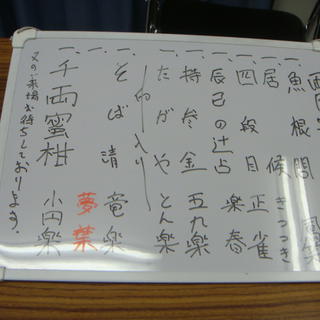 一、魚根問
一、居候 きつつき
一、四段目 正雀
一、辰巳の辻占 楽春
一、持参金 五九楽
一、たがや とん楽
仲入り
一、そば清 竜楽
一、 夢葉
一、千両蜜柑 小円楽
又のご来場お待ちしております。